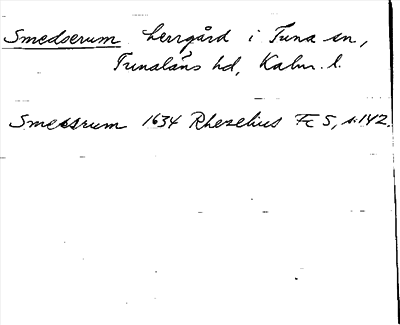 Smedserum herrgård i Tuna sn,
Tunaläns hd, Kalm. l.
Smessrum 1634 Rhezelius Fc 5, s. 142.